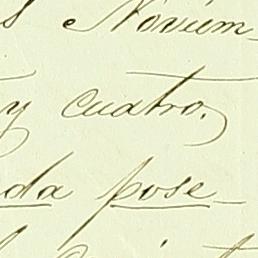 s Novum-
y cuatro.
da pose-